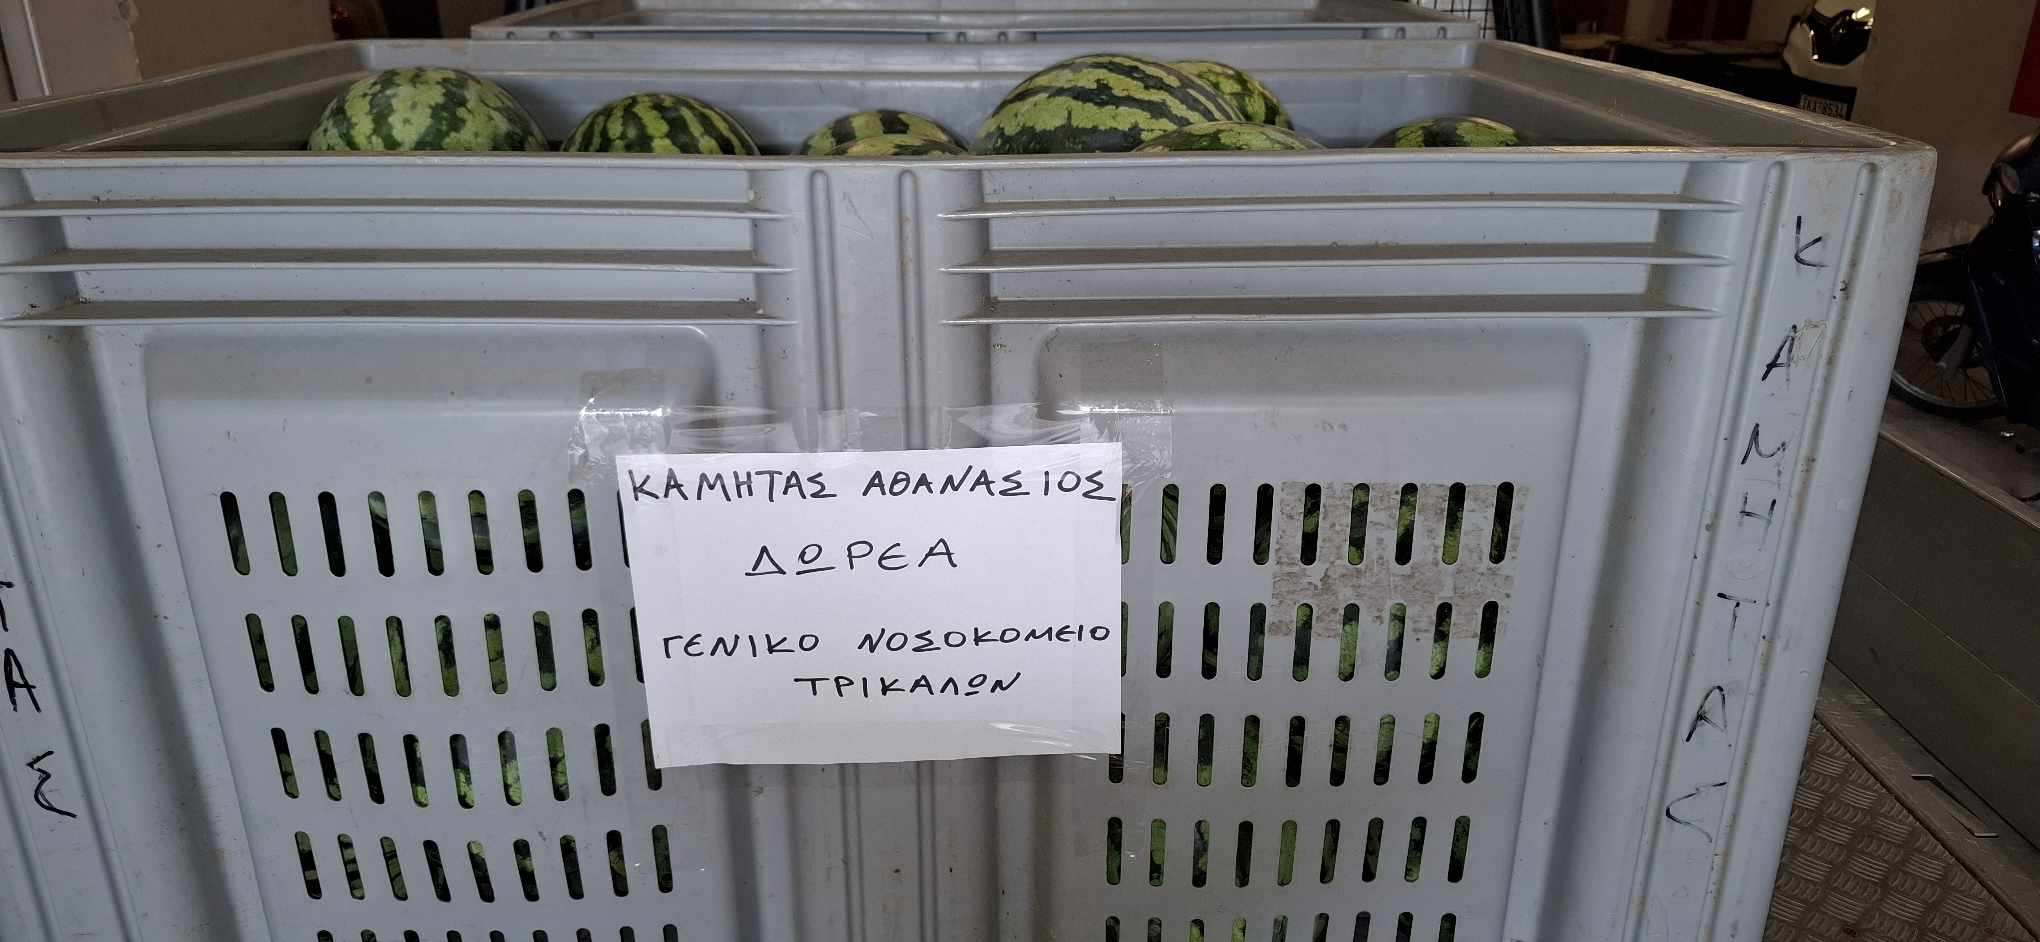 ΚΑΜΗΤΑΣ ΑΘΑΝΑΣΙΟΣ
ΔΩΡΕΑ
ΓΕΝΙΚΟ ΝΟΣΟΚΟΜΕΙΟ
ΤΡΙΚΑΛΩΝ
ΚΑΜΗΤΑΣ
ΤΑΣ